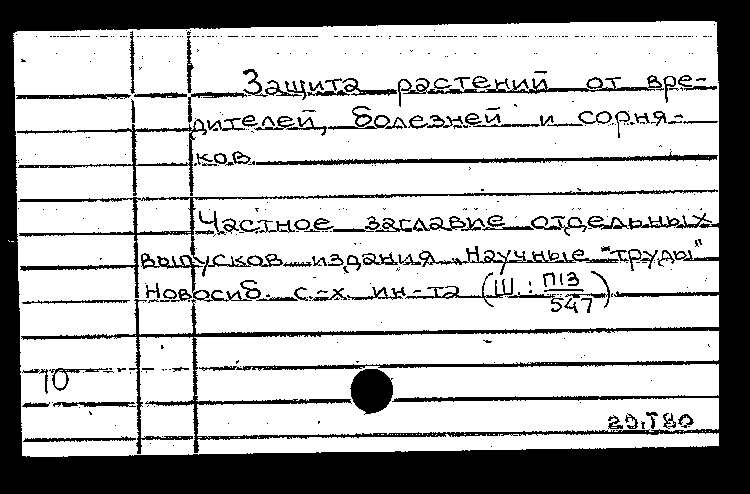 Защита растений от вре-
дителей, болезней и сорня-
ков
Частное заглавие отдельных
выпусков издания "Научные "труды"
Новосиб. с.-х. ин-та (Ш: П13/547).
10
29.I80